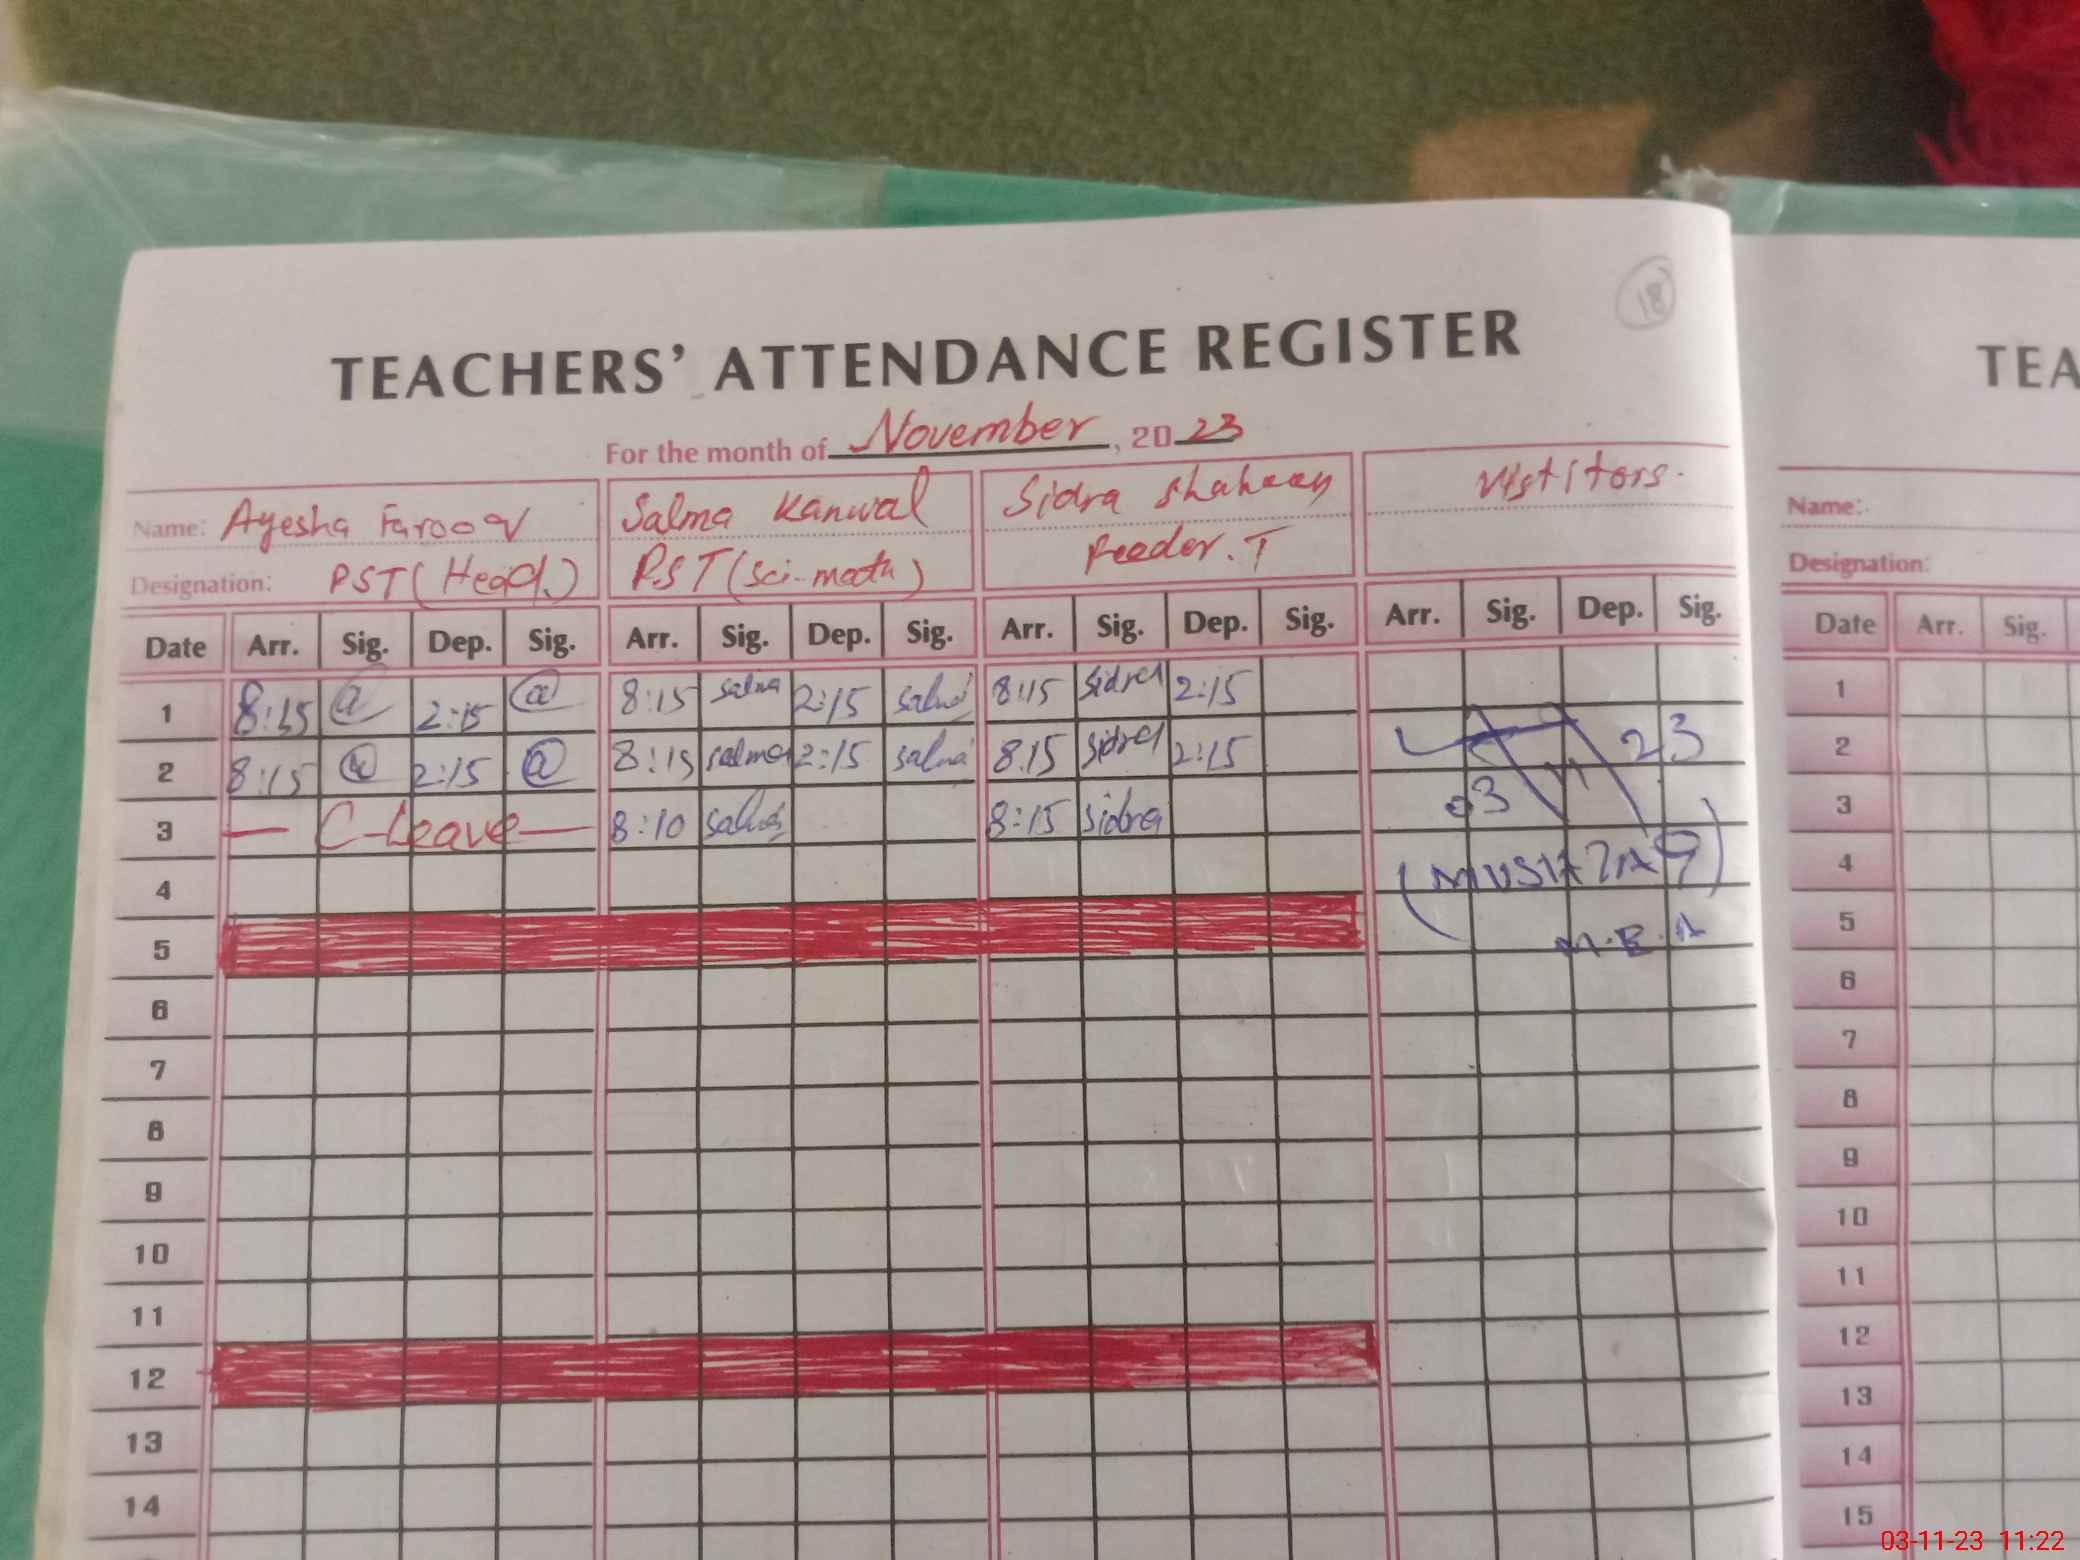 18
TEACHERS' ATTENDANCE REGISTER
For the month of November, 2023
Name: Ayesha Farooq Salma Kanwal Sidra Shaheen Vistitors.
Designation: PST (Head.) P.S T (Sci-math) Feeder. T
Date Arr. Sig. Dep. Sig. Arr. Sig. Dep. Sig. Arr. Sig. Dep. Sig. Arr. Sig. Dep. Sig.
1 8:15 @ 2:15 @ 8:15 Salma 2:15 Salma 8:15 Sidra 2:15
2 8:15 @ 2:15 @ 8:15 Salma 2:15 Salma 8:15 Sidra 2:15 23
3 — C-Leave — 8:10 Salma 8:15 Sidra 03
4 (MUSHTAQ)
5 M.E.A
6
7
8
9
10
11
12
13
14
TEA
Name:
Designation:
Date Arr. Sig.
1
2
3
4
5
6
7
8
9
10
11
12
13
14
15
03-11-23 11:22